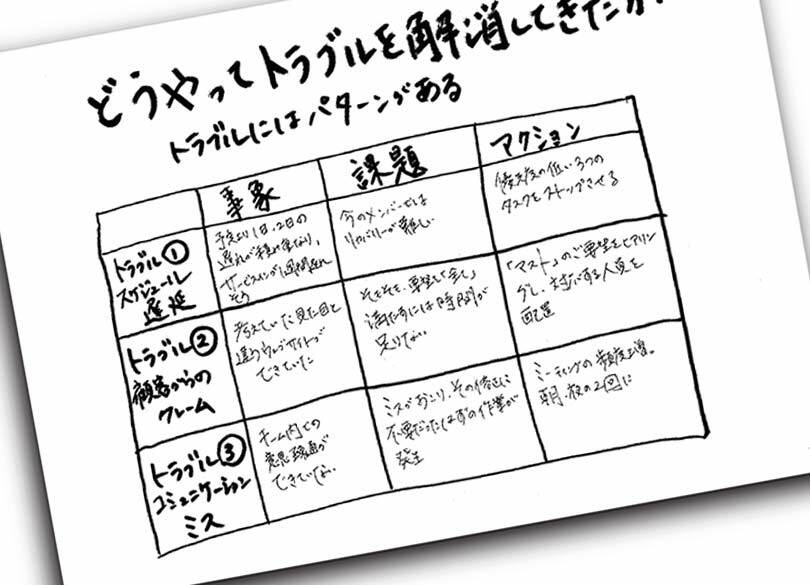 どうやってトラブルを解消してきたか?
トラブルにはパターンがある
事象
課題
アクション
トラブル①
スケジュール
遅延
予定より1日、2日の
遅れが積み重なり、
サービスインが1週間遅れ
そう
今のメンバーでは
リカバリーが難しい
優先度の低い3つの
タスクをストップさせる
トラブル②
顧客からの
クレーム
考えていた見た目と
違うウェブサイトが
できていた
そもそも、要望を「全て」
満たすには時間が
足りない
「マスト」のご要望をヒアリン
グし、対応する人員を
配置
トラブル③
コミュニケーション
ミス
チーム内での
意思疎通が
できていない
ミスがおこり、その修正に
不要だったはずの作業が
発生
ミーティングの頻度上漲。
朝・夜の2回に